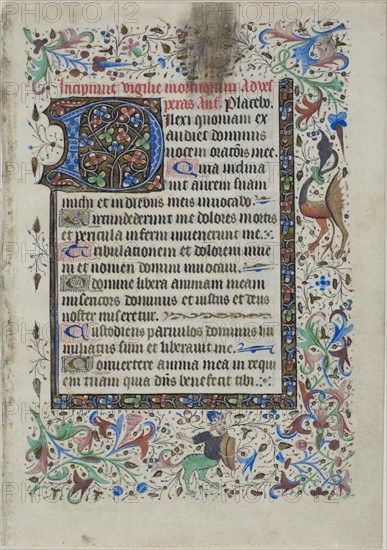 Incipiunt vigilie mortuorum Ad ves
peras Ant. Placebo.
Dilexi quoniam ex
audiet dominus
vocem orationis mee.
Quia inclina
uit aurem suam
michi et in diebus meis inuocabo.
Circumdederunt me dolores mortis
et pericula inferni inuenerunt me.
Tribulationem et dolorem inue
ni et nomen domini inuocaui.
O domine libera animam meam
misericors dominus et iustus et deus
noster miseretur.
Custodiens paruulos dominus hu
miliatus sum et liberauit me.
Conuertere anima mea in requi
em tuam quia dns benefecit tibi.